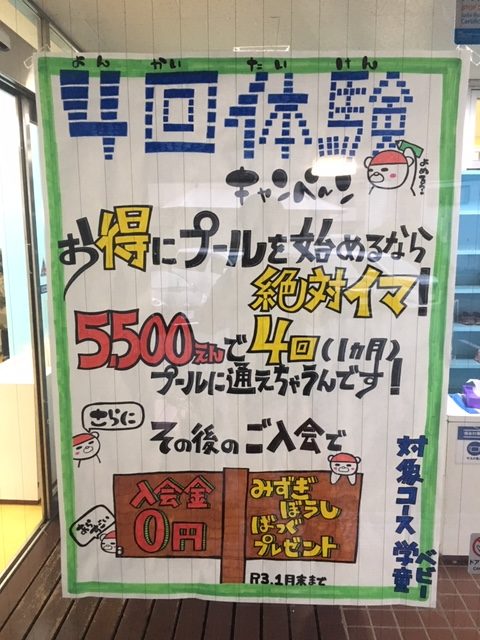 よん かい たい けん
4回体験
キャンペーン
よめる?
お得にプールを始めるなら
絶対イマ!
5,500えんで4回(1ヵ月)
プールに通えちゃうんです!
さらに
その後のご入会で
入会金
0円
みずぎ
ぼうし
ばっぐ
プレゼント
R3.1月末まで
対象コース 学童
ベビー